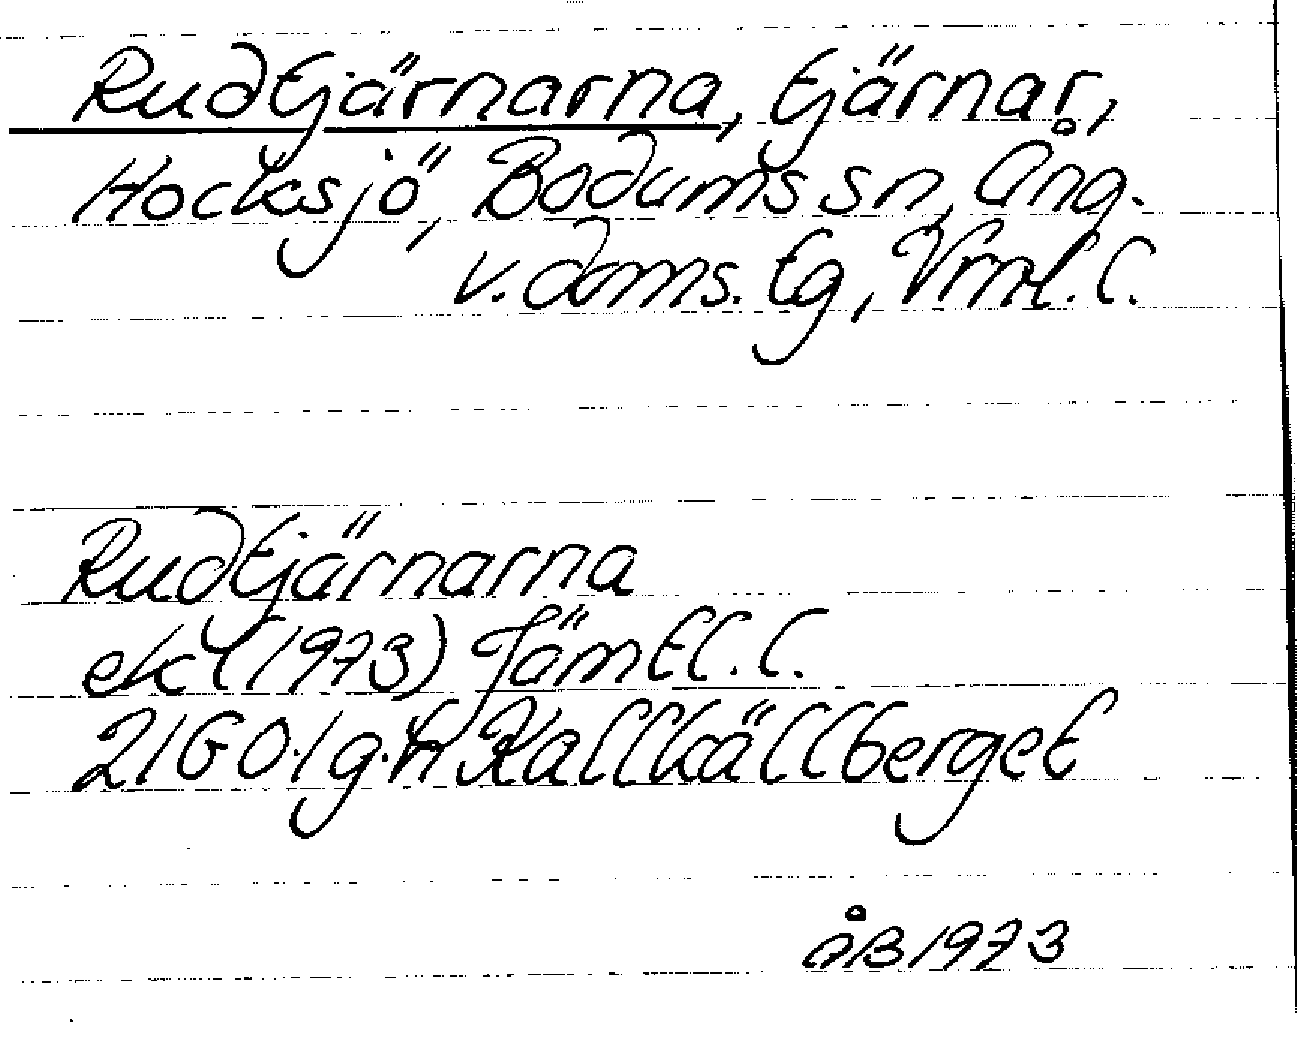 Rudtjärnarna, tjärnar,
Hocksjö, Bodums sn, Ång.
v. doms. tg, Vrnl. l.
Rudtjärnarna
ek (1973) Jämtl. l.
21G 0.1 g.h Kallkällberget
ÅB 1973